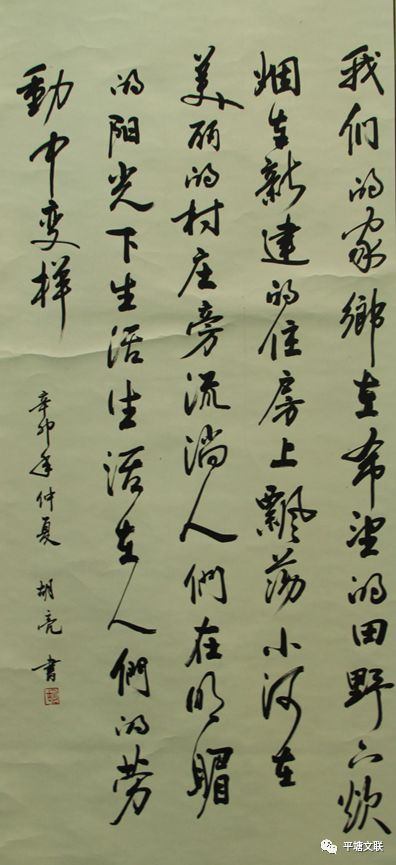 我们的家鄉在希望的田野上炊
烟在新建的住房上飄荡小河在
美丽的村庄旁流淌人們在明媚
的阳光下生活生活在人們的劳
動中变样
辛卯年仲夏 胡亮 書
平塘文联